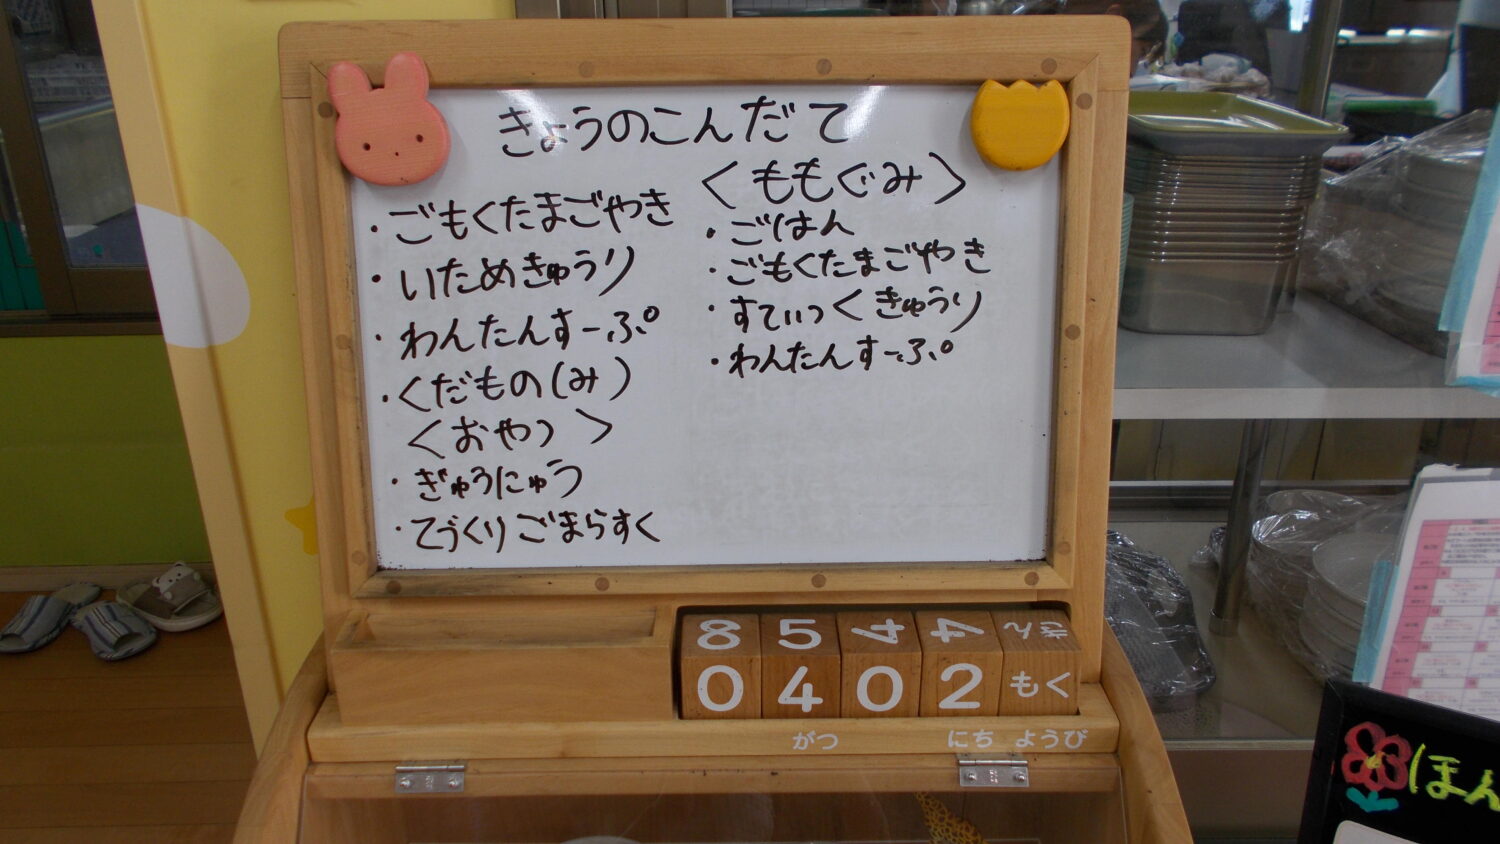 きょうのこんだて
・ごもくたまごやき
・いためきゅうり
・わんたんすーぷ
・くだもの(み)
<おやつ>
・ぎゅうにゅう
・てづくりごまらすく
<ももぐみ>
・ごはん
・ごもくたまごやき
・すてぃっくきゅうり
・わんたんすーぷ
8 5 4 4 きん
0 4 0 2 もく
がつ にち ようび
ほん